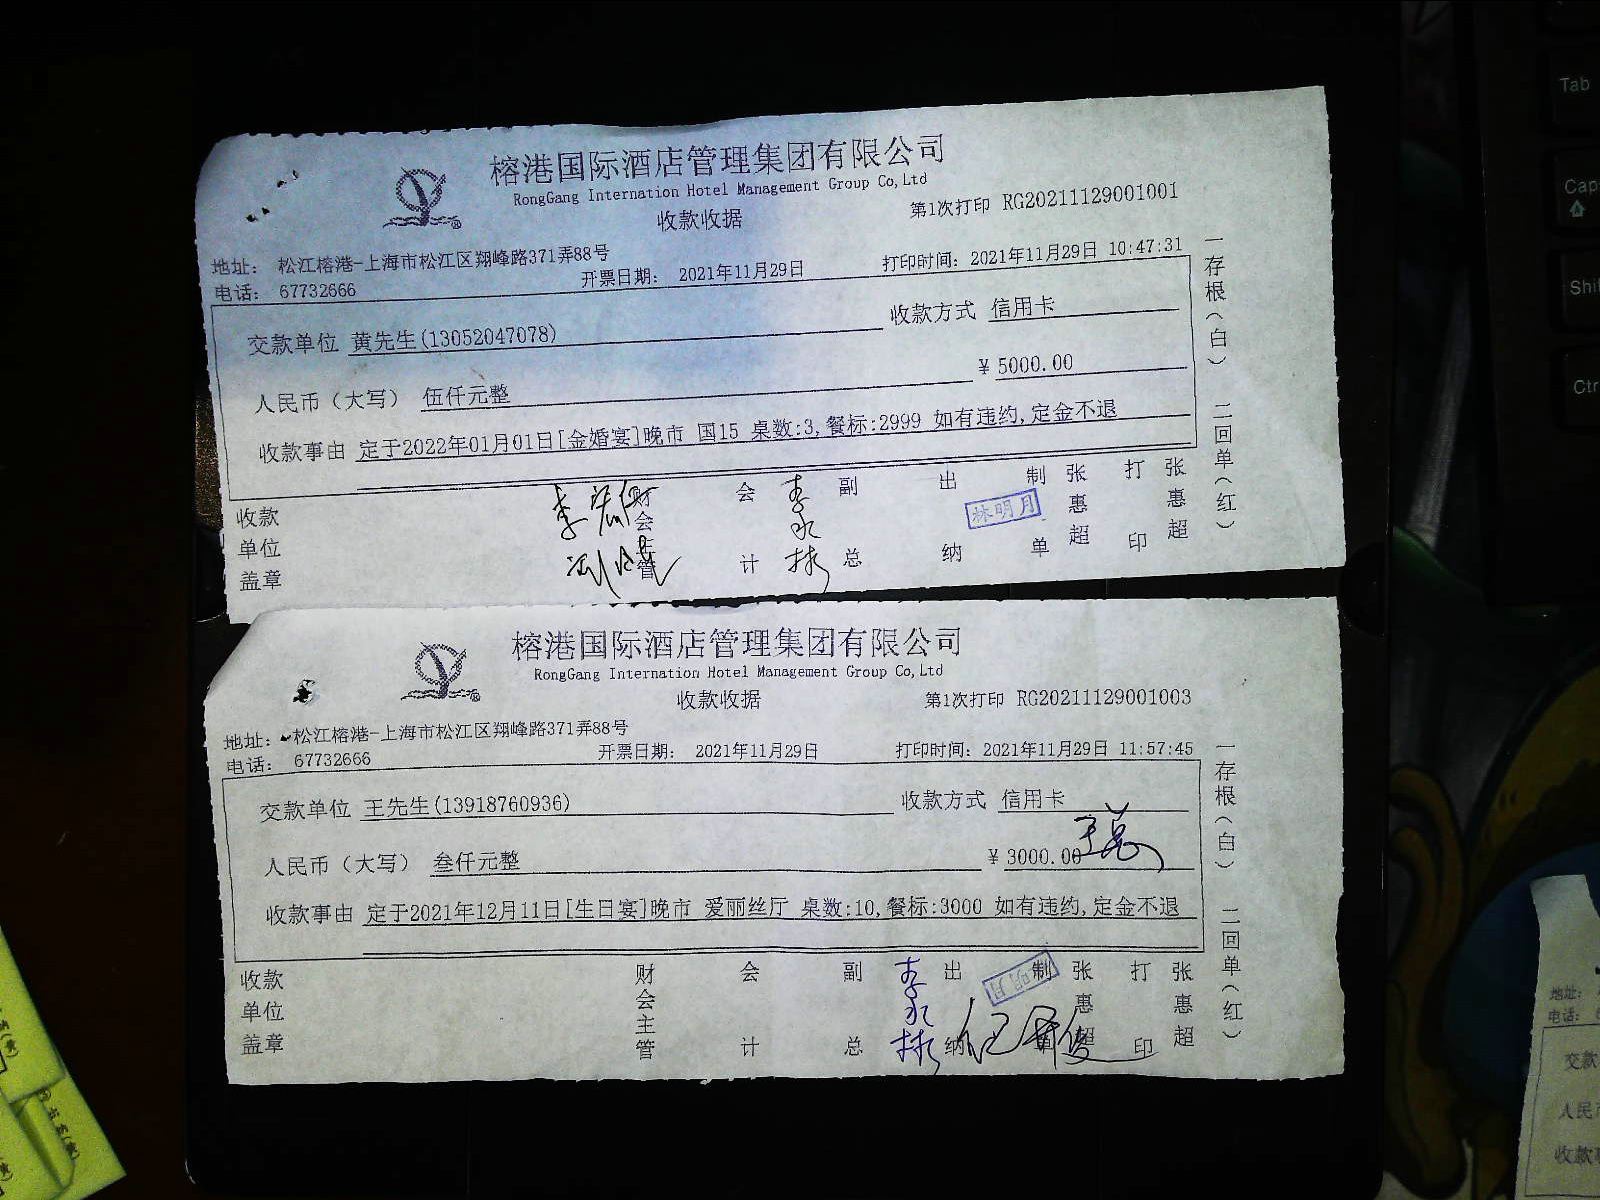 榕港国际酒店管理集团有限公司
RongGang Internation Hotel Management Group Co,Ltd
收款收据
第1次打印 RG20211129001001
地址： 松江榕港-上海市松江区翔峰路371弄88号
电话： 67732666
开票日期： 2021年11月29日
打印时间：2021年11月29日 10:47:31
交款单位 黄先生(13052047078)
收款方式 信用卡
人民币（大写） 伍仟元整
￥ 5000.00
收款事由 定于2022年01月01日[金婚宴]晚市 国15 桌数:3,餐标:2999 如有违约,定金不退
收款单位盖章
财会主管
会计
副总
出纳
林明月
制单
张惠超
打印
张惠超
一存根（白） 二回单（红）
榕港国际酒店管理集团有限公司
RongGang Internation Hotel Management Group Co,Ltd
收款收据
第1次打印 RG20211129001003
地址： 松江榕港-上海市松江区翔峰路371弄88号
电话： 67732666
开票日期： 2021年11月29日
打印时间：2021年11月29日 11:57:45
交款单位 王先生(13918760936)
收款方式 信用卡
人民币（大写） 叁仟元整
￥ 3000.00
收款事由 定于2021年12月11日[生日宴]晚市 爱丽丝厅 桌数:10,餐标:3000 如有违约,定金不退
收款单位盖章
财会主管
会计
副总
出纳
制单
张惠超
打印
张惠超
一存根（白） 二回单（红）
Tab
Cap
Shi
Ctr
地址：
电话：
交款
人民
收款